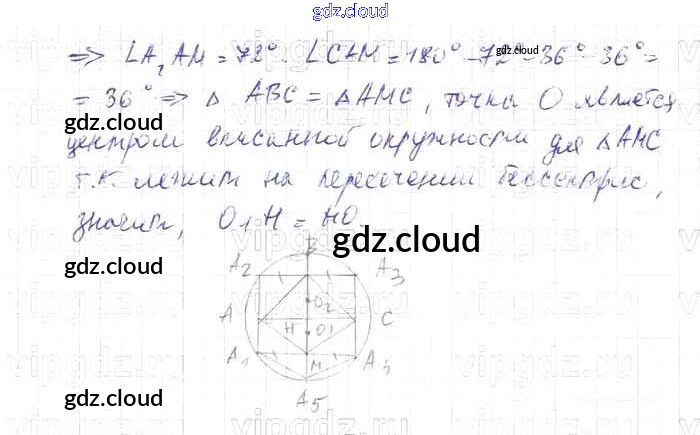 gdz.cloud
⇒ ∠A₂AM = 72°. ∠CAM = 180° - 72° - 36° - 36° =
gdz.cloud
= 36° ⇒ △ ABC = △ AMC, точка O является
gdz.cloud
центром вписанной окружности для △ AMC
т.к. лежит на пересечении биссектрис,
gdz.cloud
значит, O₁H = HO
gdz.cloud
B
A₂ A₃
gdz.cloud
O₂
A C
H O₁
A₁ M A₄
gdz.cloud
gdz.cloud
A₅